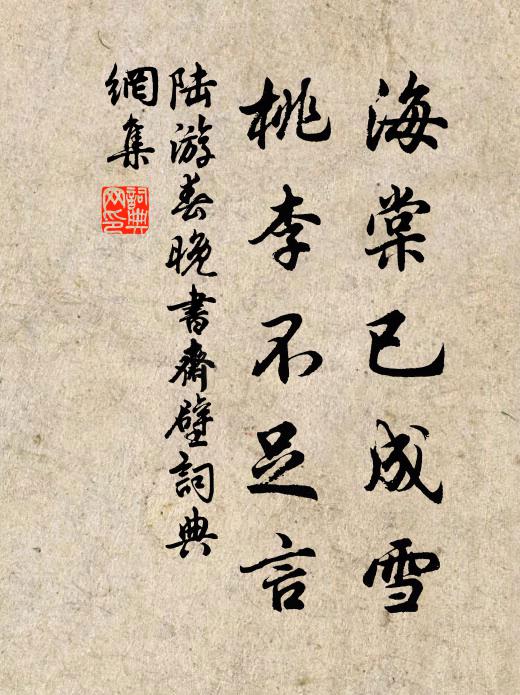 海棠已成雪
桃李不足言
陆游春晚书斋壁詞典
網集
詞典网印